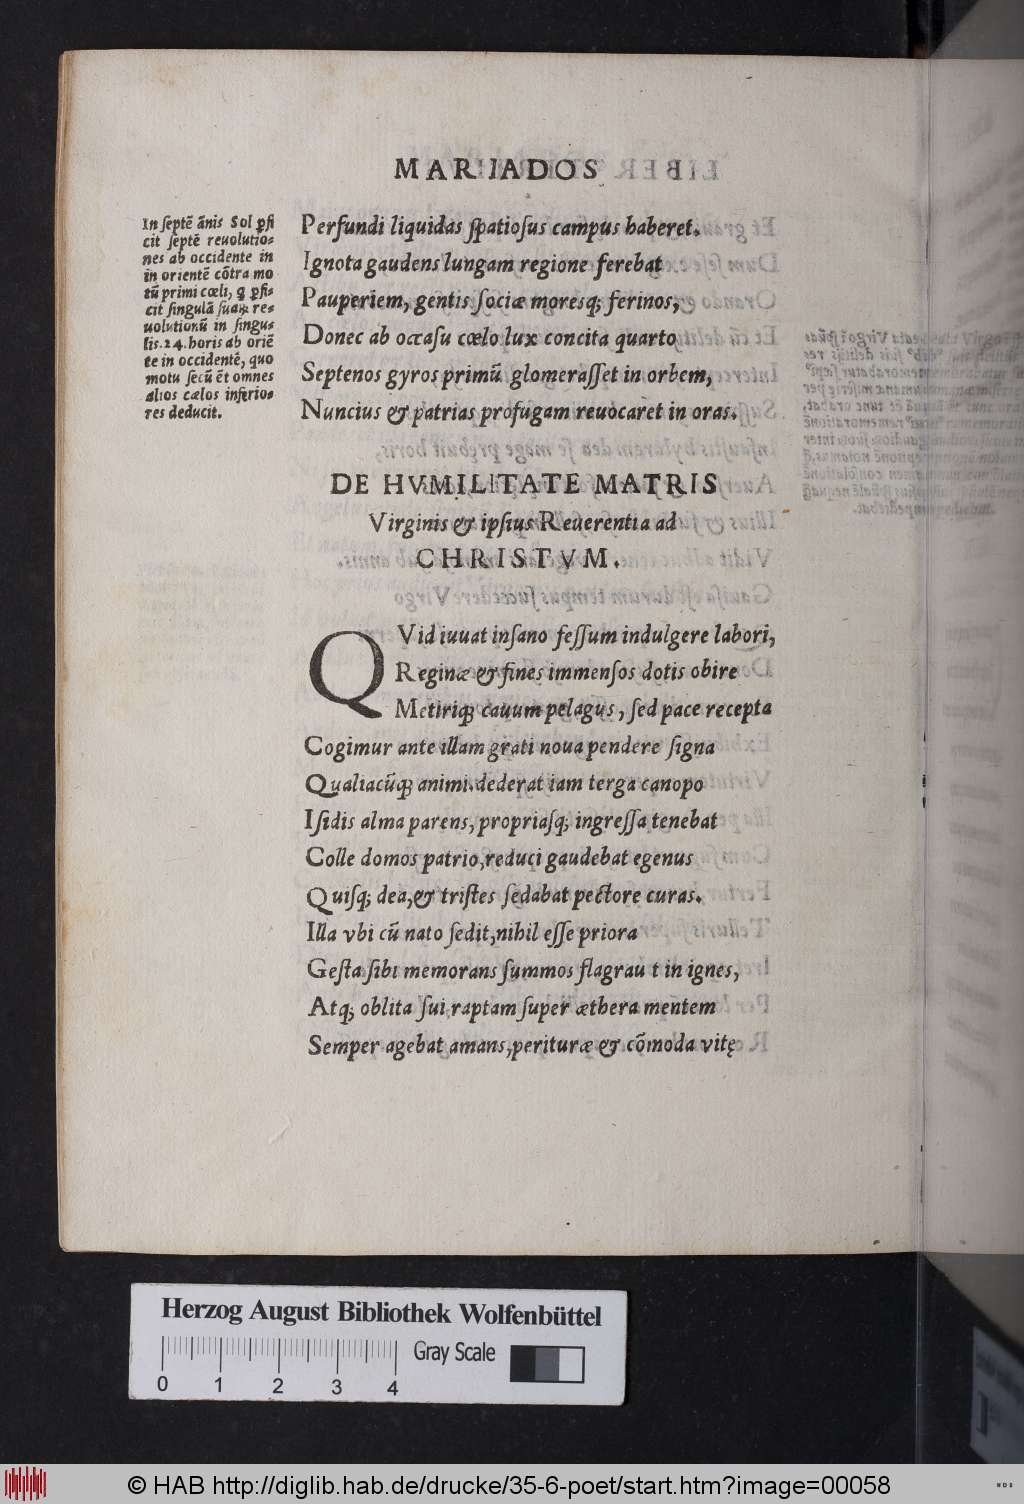 MARIADOS
In septē ānis Sol ꝑfi
cit septē reuolutio-
nes ab occidente in
in orientē cōtra mo
tū primi cœli, q ꝑfi-
cit singulā suaꝝ re-
uolutionū in singu-
lis.24.horis ab oriē
te in occidentē, quo
motu secū ēt omnes
alios cœlos inferio-
res deducit.
Perfundi liquidas spatiosus campus haberet.
Ignota gaudens lungam regione ferebat
Pauperiem, gentis sociæ moresq; ferinos,
Donec ab occasu cœlo lux concita quarto
Septenos gyros primū glomerasset in orbem,
Nuncius & patrias profugam reuocaret in oras.
DE HVMILITATE MATRIS
Virginis & ipsius Reuerentia ad
CHRISTVM.
QVid iuuat insano fessum indulgere labori,
Reginæ & fines immensos dotis obire
Metiriq; cauum pelagus, sed pace recepta
Cogimur ante illam grati noua pendere signa
Qualiacūq; animi.dederat iam terga canopo
Isidis alma parens, propriasq; ingressa tenebat
Colle domos patrio,reduci gaudebat egenus
Quisq; dea,& tristes sedabat pectore curas.
Illa vbi cū nato sedit,nihil esse priora
Gesta sibi memorans summos flagrau t in ignes,
Atq; oblita sui,raptam super æthera mentem
Semper agebat amans,perituræ & cōmoda vitę
Herzog August Bibliothek Wolfenbüttel
Gray Scale
0 1 2 3 4
© HAB http://diglib.hab.de/drucke/35-6-poet/start.htm?image=00058